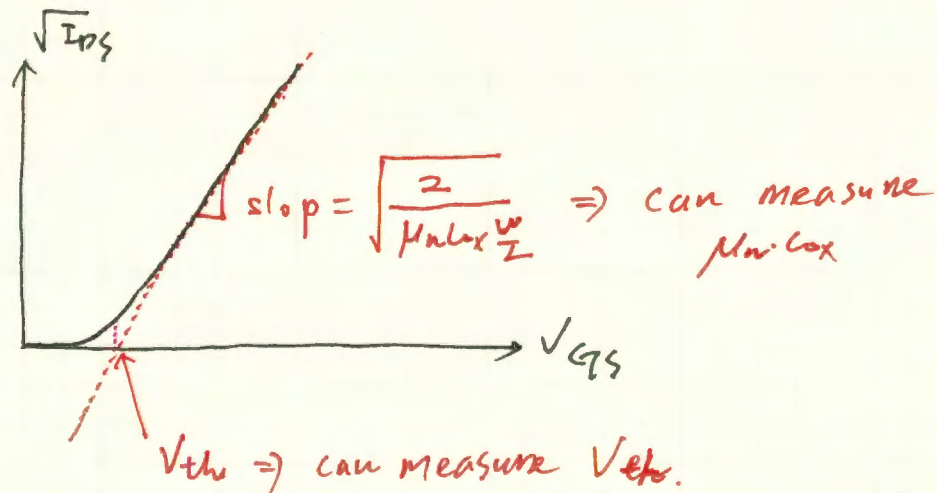 √I_DS
slop = √(2 / (μn Cox W/L)) ⇒ can measure
μn·Cox
V_GS
Vth ⇒ can measure Vth.